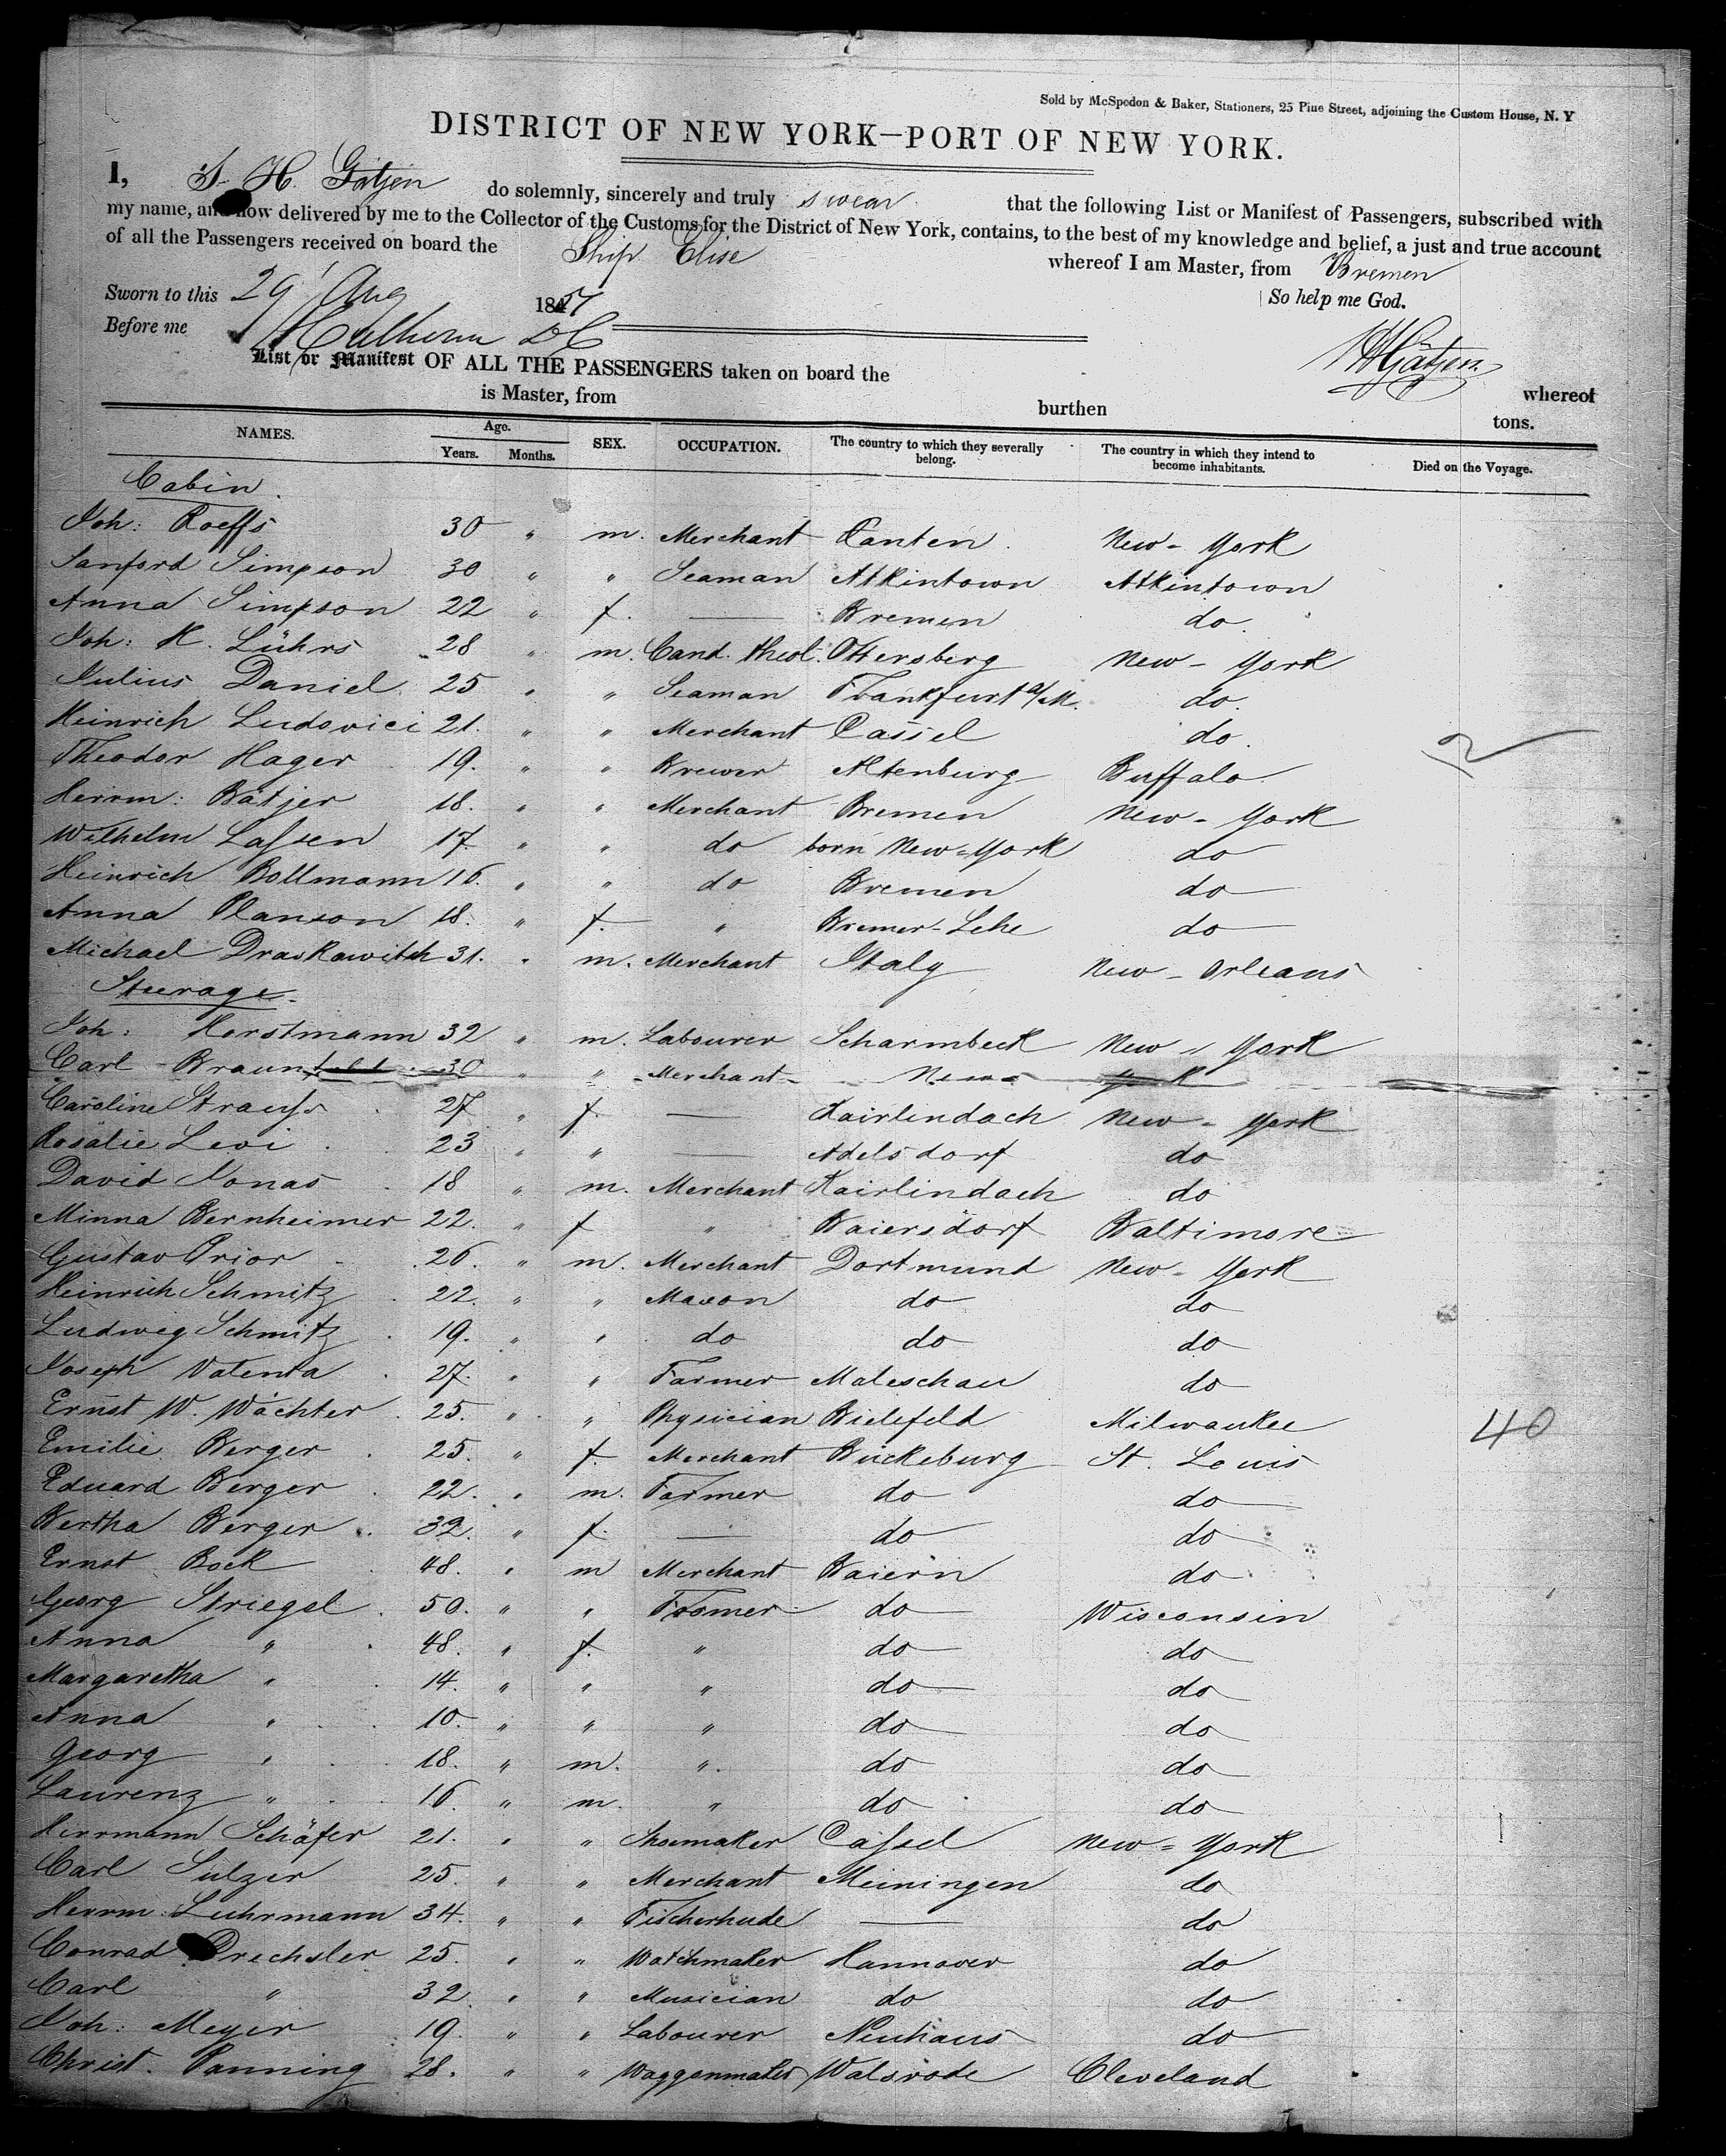 Sold by McSpedon & Baker, Stationers, 25 Pine Street, adjoining the Custom House, N. Y
DISTRICT OF NEW YORK—PORT OF NEW YORK.
I, H. Gätjen do solemnly, sincerely and truly swear that the following List or Manifest of Passengers, subscribed with
my name, and now delivered by me to the Collector of the Customs for the District of New York, contains, to the best of my knowledge and belief, a just and true account
of all the Passengers received on board the Ship Elise whereof I am Master, from Bremen
Sworn to this 29 Aug 185 So help me God.
Before me
HGätjen
List or Manifest OF ALL THE PASSENGERS taken on board the whereof
is Master, from burthen tons.
NAMES. Age. Years. Months. SEX. OCCUPATION. The country to which they severally belong. The country in which they intend to become inhabitants. Died on the Voyage.
Cabin.
Joh: Roeffs 30 " m. Merchant Canten. New-York
Sanford Simpson 30 " " Seaman Atkintown Atkintown
Anna Simpson 22 " f. — Bremen do.
Joh: H. Lührs 28 " m. Cand. theol. Ottersberg New-York
Julius Daniel 25 " " Seaman Frankfurt a/M. do.
Heinrich Ludovici 21. " " Merchant Cassel do.
Theodor Hager 19. " " Brewer Altenburg Buffalo.
Herrm: Bätjer 18. " " Merchant Bremen New-York
Wilhelm Lassen 17. " " do born New-York do
Heinrich Bollmann 16. " " do Bremen do
Anna Planson 18. " f. " Bremer-Lehe do
Michael Draskawitch 31. " m. Merchant Italy New-Orleans
Steerage.
Joh: Horstmann 32 " m. Labourer Scharmbeck New-York
Carl Braun 30 " " Merchant New York
Caroline Strauss 27 " f. — Kairlindach New-York
Rosalie Levi 23 " " — Adelsdorf do
David Jonas 18 " m. Merchant Kairlindach do
Minna Bernheimer 22. " f " Baiersdorf Baltimore
Gustav Prior 26. " m. Merchant Dortmund New-York
Heinrich Schmitz 22. " " Mason do do
Ludwig Schmitz 19. " " do do do
Joseph Vatenta 27. " " Farmer Maleschau do
Ernst W. Wächter 25. " " Physician Bielefeld Milwaukee 40
Emilie Berger 25. " f. Merchant Bückeburg St. Louis
Eduard Berger 22. " m. Farmer do do
Bertha Berger 32. " f. — do do
Ernst Bock 48. " m Merchant Baiern do
Georg Striegel 50. " " Farmer do Wisconsin
Anna " 48. " f. " do do
Margaretha " 14. " " " do do
Anna " 10. " " " do do
Georg " 18. " m. " do do
Laurenz " 16. " m. " do do
Herrmann Schäfer 21. " " Shoemaker Cassel New-York
Carl Sulzer 25. " " Merchant Meiningen do
Herrm. Luhrmann 34. " " Fischerhude — do
Conrad Drechsler 25. " " Watchmaker Hannover do
Carl " 32. " " Musician do do
Joh: Meyer 19. " " Labourer Neuhaus do
Christ. Panning 28. " " Waggonmaker Walsrode Cleveland